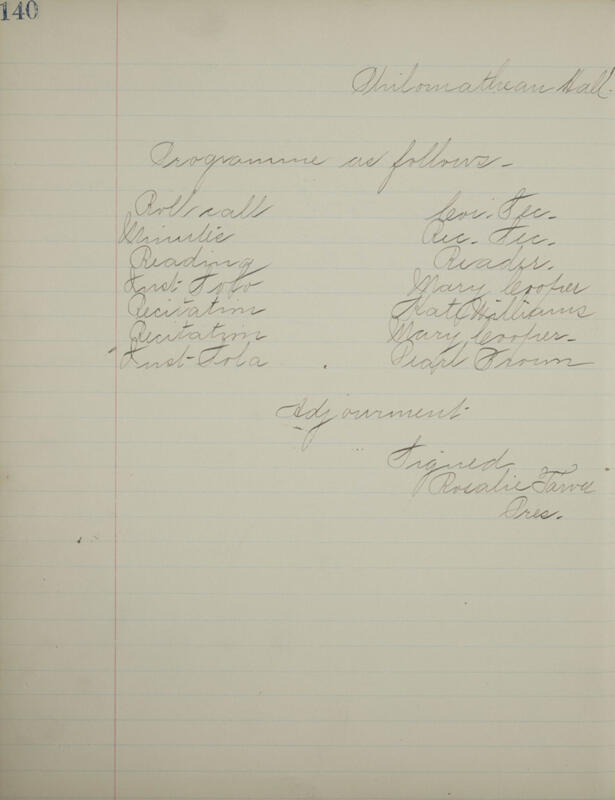 140
Philomathean Hall.
Programme as follows-
Roll call Cor. Sec.
Minutes Rec. Sec.
Reading Reader.
Inst. Solo Mary Cooper
Recitation Kate Williams
Recitation Mary Cooper-
Inst-Solo Pearl Brown
Adjourment
Signed
Rosalie
Pres.